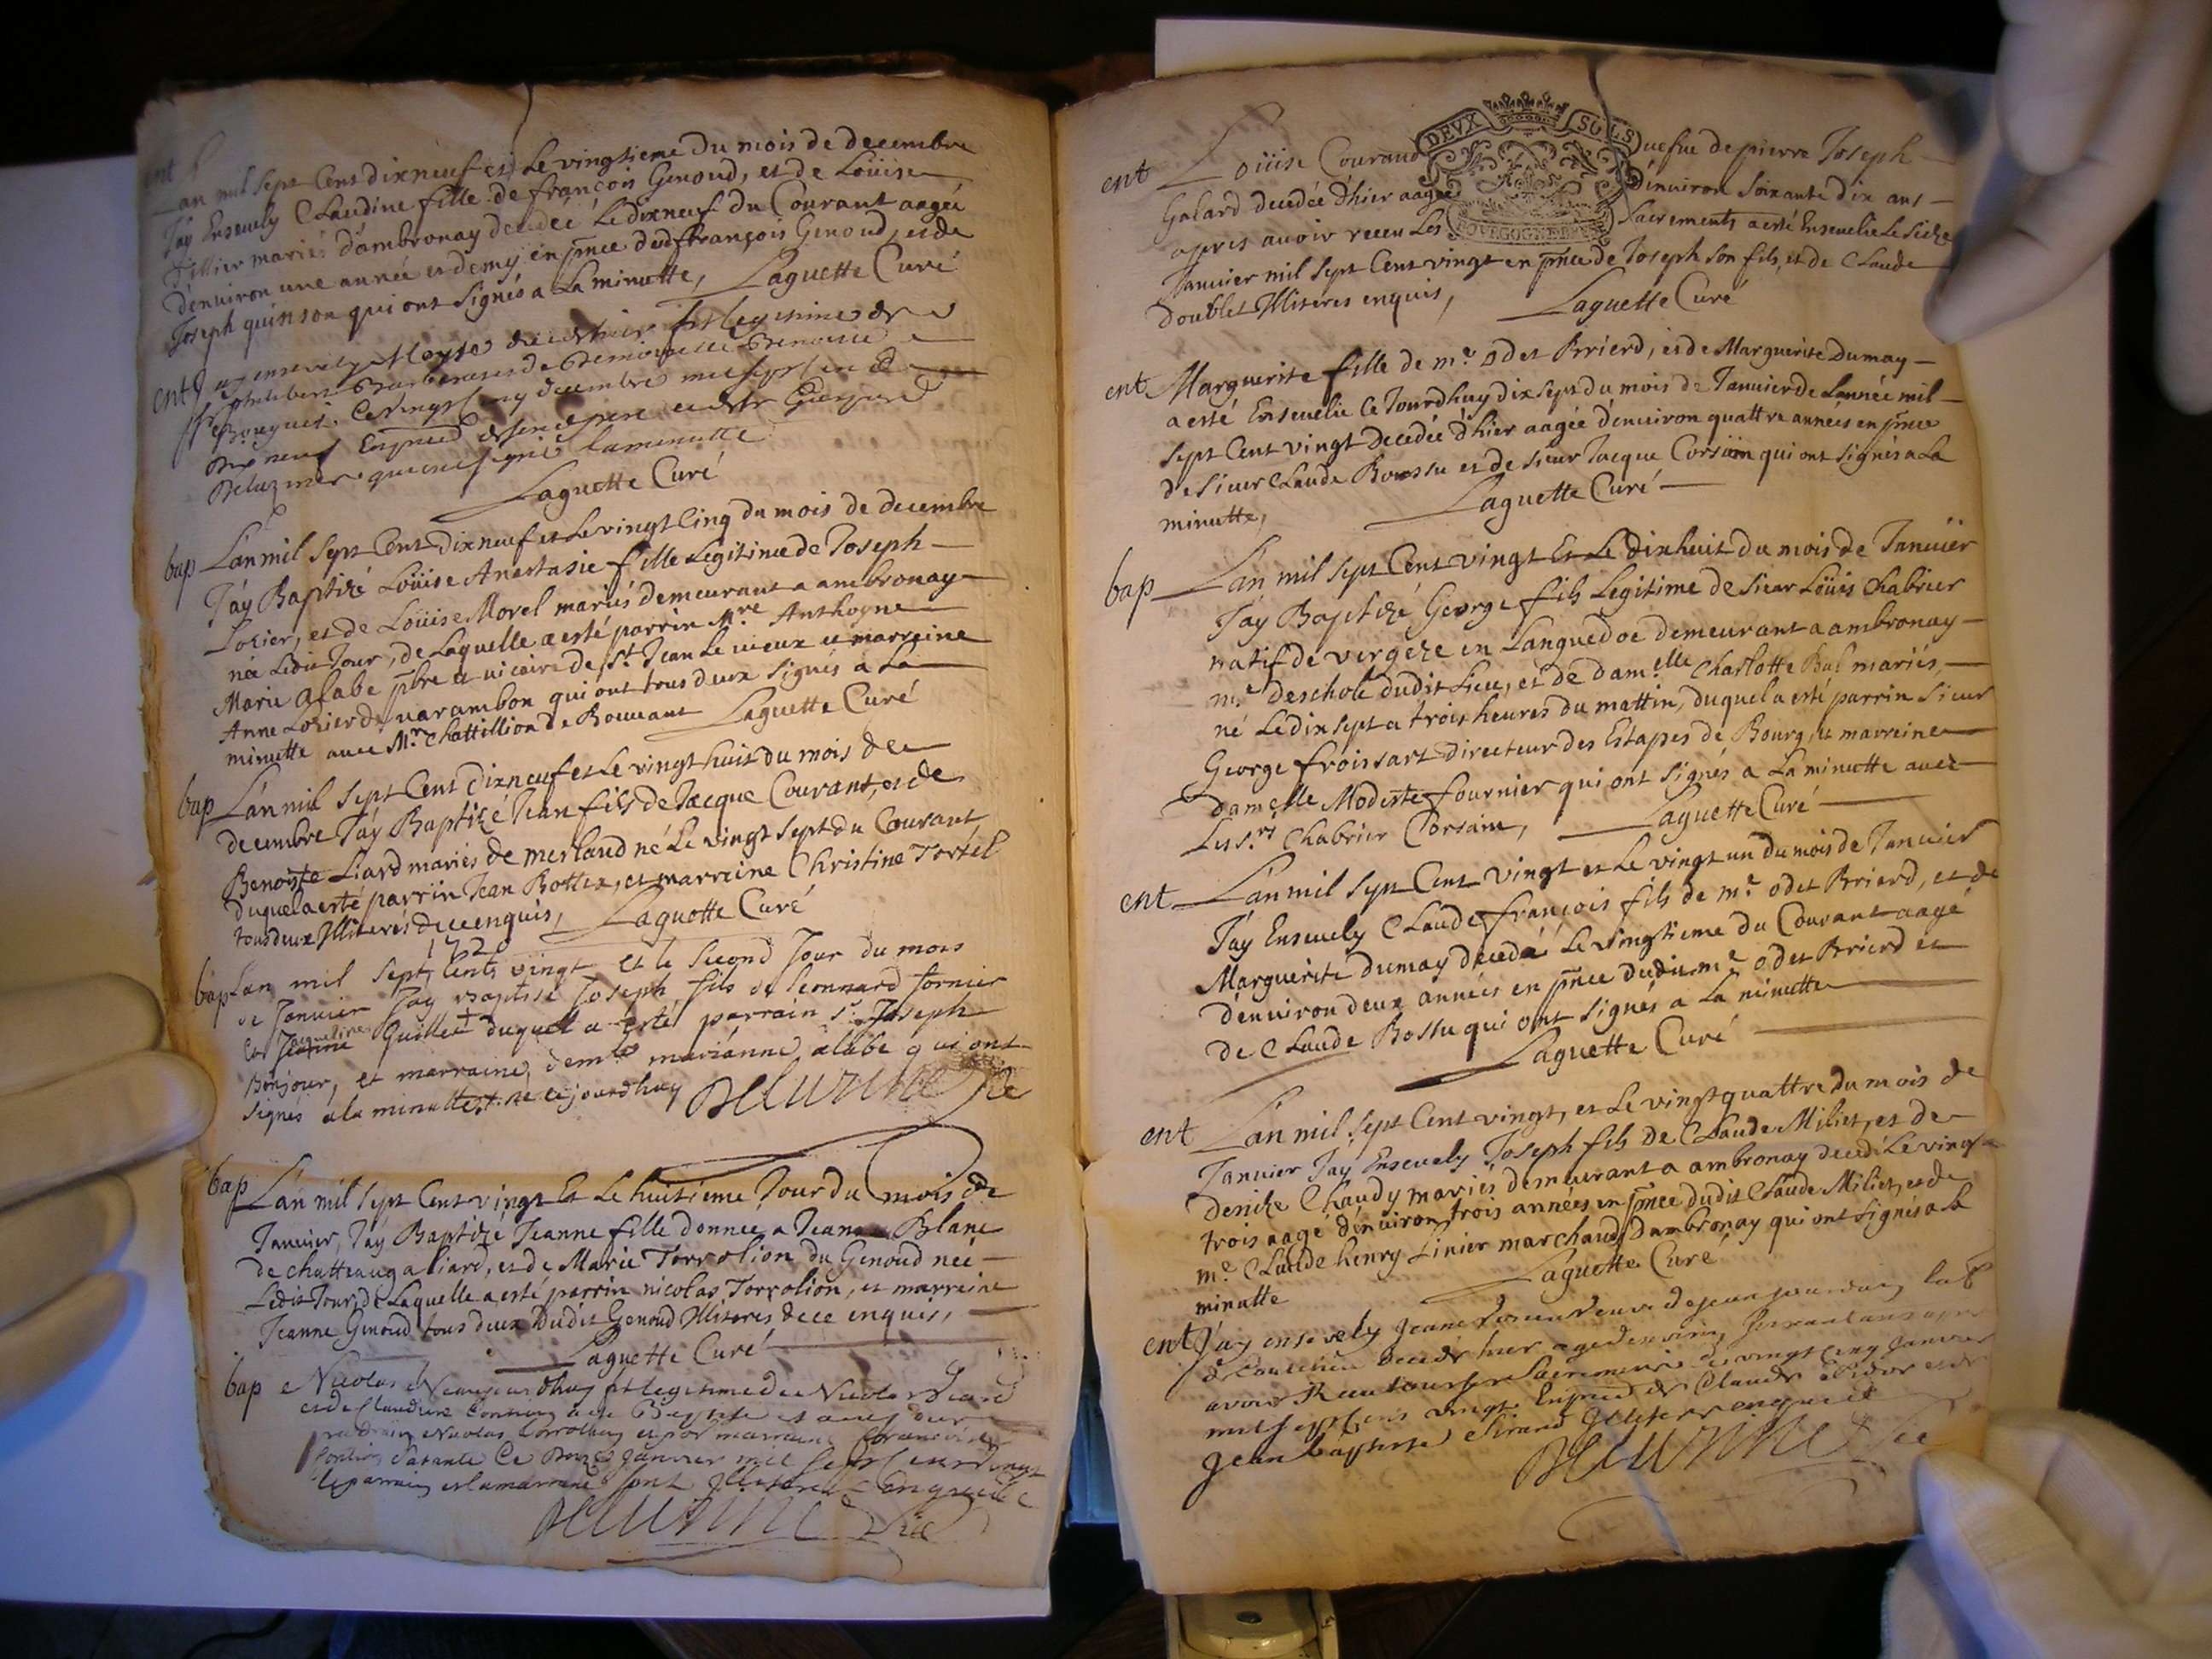 ent
Lan mil sept Cent dixneuf et Le vingtieme Du mois de decembre
Jay Ensevely Claudine fille de françois Genoud, et de Loüise
Tillier mariés d'ambronay decedée Le dixneuf du Courant aagée
d'environ une année et demy en pnce dud françois Genoud, et de
Joseph quinson qui ont Signés a La minutte, Laguette Curé
ent Jay ensevely fils legitime de
philibert de Demoiselle
Ce vingt cinq decembre mil sept cent
dix neuf En pnce de son pere et de
qui ont signé la minutte
Laguette Curé
bap L'an mil Sept Cent Dixneuf et Le vingt Cinq du mois de decembre
Jáy Baptizé Loüise Anastasie fille Legitime de Joseph
Lozier, et de Loüise Morel mariés demeurant a ambronay
née Ledit Jour, de Laquelle a esté parrin Mre Anthoyne
Marie alabe pbre et vicaire de St Jean Le vieux et marreine
Anne Lozier de varambon qui ont tous deux Signés a La
minutte avec Mr Chattillion de Bouvant Laguette Curé
bap L'an mil Sept Cent Dixneuf et Le vingt huit du mois de
decembre Jáy Baptizé Jean fils de Jacque Courant, et de
Benoiste Liard mariés de merland né Le vingt Sept du Courant
duquel a esté parrin Jean Bottex, et marraine Christine Tortel
tous deux Illiterés de ce enquis, Laguette Curé
1720
bap Lan mil Sept Cents vingt et le Second Jour du mois
de Janvier Jay Baptisé Joseph fils de leonnard fornier
et Jeanne Jacqueline Quillet duquel a esté parrain Sr Joseph
Bonjour, et marraine, demlle marianne alabe qui ont
Signés a la minutte né cejourdhuy
bap L'an mil Sept Cent vingt Et Le huitieme Jour du mois de
Janvier, Jáy Baptizé Jeanne fille donnée a Jean Blanc
de chatteaugaliard, et de Marie Torrolion du Genoud née
Ledit Jour, de Laquelle a esté parrin nicolas Torrolion, et marreine
Jeanne Genoud tous deux Dudit Genoud Illiterés de ce enquis,
Laguette Curé
bap Nicolas fils legitime de Nicolas
et de Claudine a été Baptisé
Nicolas Torrolion et por marraine
Ce Janvier mil sept cent vingt
le parrain et la marraine sont Illiterés Enquis
ent Loüise Courand veufue de pierre Joseph
DEVX SOLS
Galard decedée d'hier aagée d'environ Soixante dix ans
apres avoir receu Les Sacrements a esté Ensevelie Le Seize
Janvier mil Sept Cent vingt en pnce de Joseph Son fils, et de Claude
doublet Illiteres enquis, Laguette Curé
ent Marguerite fille de me odet Brierd, et de Marguerite Dumay
a esté Ensevelie Ce Jourdhuy dix Sept du mois de Janvier de Lannée mil
Sept Cent vingt decedée d'hier aagée d'environ quattre années en pnce
de Sieur Claude Bossu et de Sieur Jacque Corsain qui ont Signés a La
minutte, Laguette Curé
bap L'an mil Sept Cent vingt Et Le Dixhuit du mois de Janvier
Jáy Baptizé George fils Legitime de Sieur Loüis Chabrier
natif de vergeze en Languedoc demeurant a ambronay
me descholle dudit Lieu, et de damelle Charlotte Bal mariés,
né Le dixsept a trois heures du mattin, duquel a esté parrin Sieur
George froissart Directeur des Estapes de Bourg, et marreine
damelle Modeste fournier qui ont Signés a La minutte avec
Les Srs Chabrier Corsain, Laguette Curé
ent L'an mil Sept Cent vingt et Le vingt un du mois de Janvier
Jáy Ensevely Claude françois fils de me odet Brierd, et de
Marguerite dumay decedé Le vingtieme du Courant aagé
d'environ deux années en pnce dudit me odet Brierd et
de Claude Bossu qui ont Signés a La minutte
Laguette Curé
ent L'an mil Sept Cent vingt, et Le vingt quattre du mois de
Janvier Jay Ensevely Joseph fils de Claude Miliet, et de
denize Chaudy mariés demeurant a ambronay decedé Le vingt
trois aagé d'environ trois années en pnce dudit Claude Miliet, et de
me Claude henry Linier marchand Dambronay qui ont Signés a La
minutte Laguette Curé
ent J'ay ensevely Jeane veuve de Jean
decedé hier agée denviron ans apres
avoir Receu tous ses Sacrements Le vingt cinq Janvier
mil sept cens vingt En pnce de Claude et de
Jean baptiste Girand Illiteres enquis